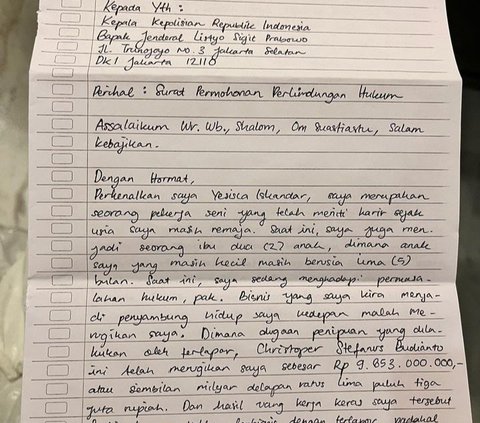 Kepada Yth :
Kepala Kepolisian Republik Indonesia
Bapak Jenderal Listyo Sigit Prabowo
Jl. Trunojoyo No. 3 Jakarta Selatan
DKI Jakarta 12110
Perihal : Surat Permohonan Perlindungan Hukum
Assalaikum Wr. Wb., Shalom, Om Suastiastu, Salam
Kebajikan.
Dengan Hormat,
Perkenalkan saya Yesisca Iskandar, saya merupakan
seorang pekerja seni yang telah meniti karir sejak
usia saya masih remaja. Saat ini, saya juga men-
jadi seorang ibu dua (2) anak, dimana anak
saya yang masih kecil masih berusia lima (5)
bulan. Saat ini, saya sedang menghadapi permasa-
lahan hukum, pak. Bisnis yang saya kira menja-
di penyambung hidup saya kedepan malah me-
rugikan saya. Dimana dugaan penipuan yang dila-
kukan oleh terlapor, Christoper Stefanus Budianto
ini telah merugikan saya sebesar Rp 9.853.000.000,-
atau sembilan milyar delapan ratus lima puluh tiga
juta rupiah. Dan hasil uang kerja keras saya tersebut
terlapor, padahal